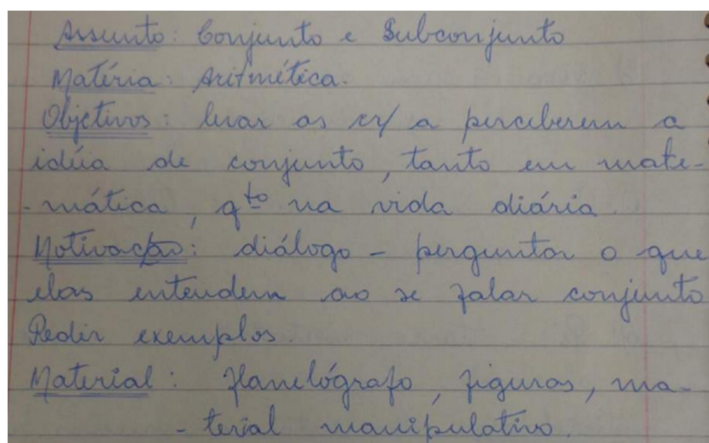 Assunto: Conjunto e Subconjunto
Matéria: Aritmética.
Objetivos: levar as cr/ a perceberem a
idéia de conjunto, tanto em mate-
-mática, qto na vida diária.
Motivação: diálogo - perguntar o que
elas entendem ao se falar conjunto
Pedir exemplos.
Material: flanelógrafo, figuras, ma-
- terial manipulativo.